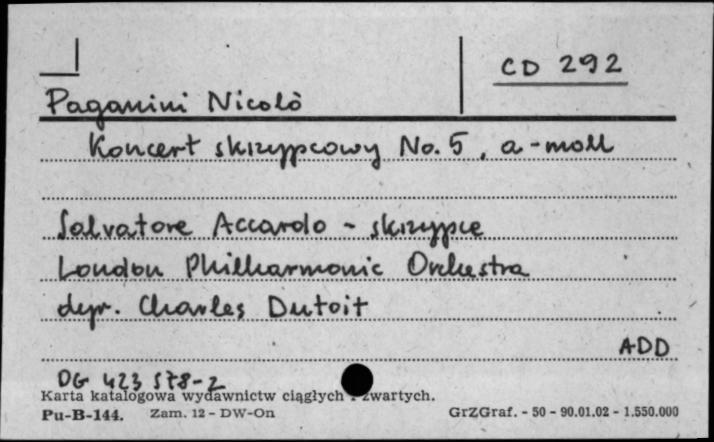 CD 292
Paganini Nicolò
Koncert skrzypcowy No. 5, a-moll
Salvatore Accardo - skrzypce
London Philharmonic Orchestra
dyr. Charles Dutoit
ADD
DG 423 578-2
Karta katalogowa wydawnictw ciągłych i zwartych.
Pu-B-144. Zam. 12 - DW-On GrZGraf. - 50 - 90.01.02 - 1.550.000